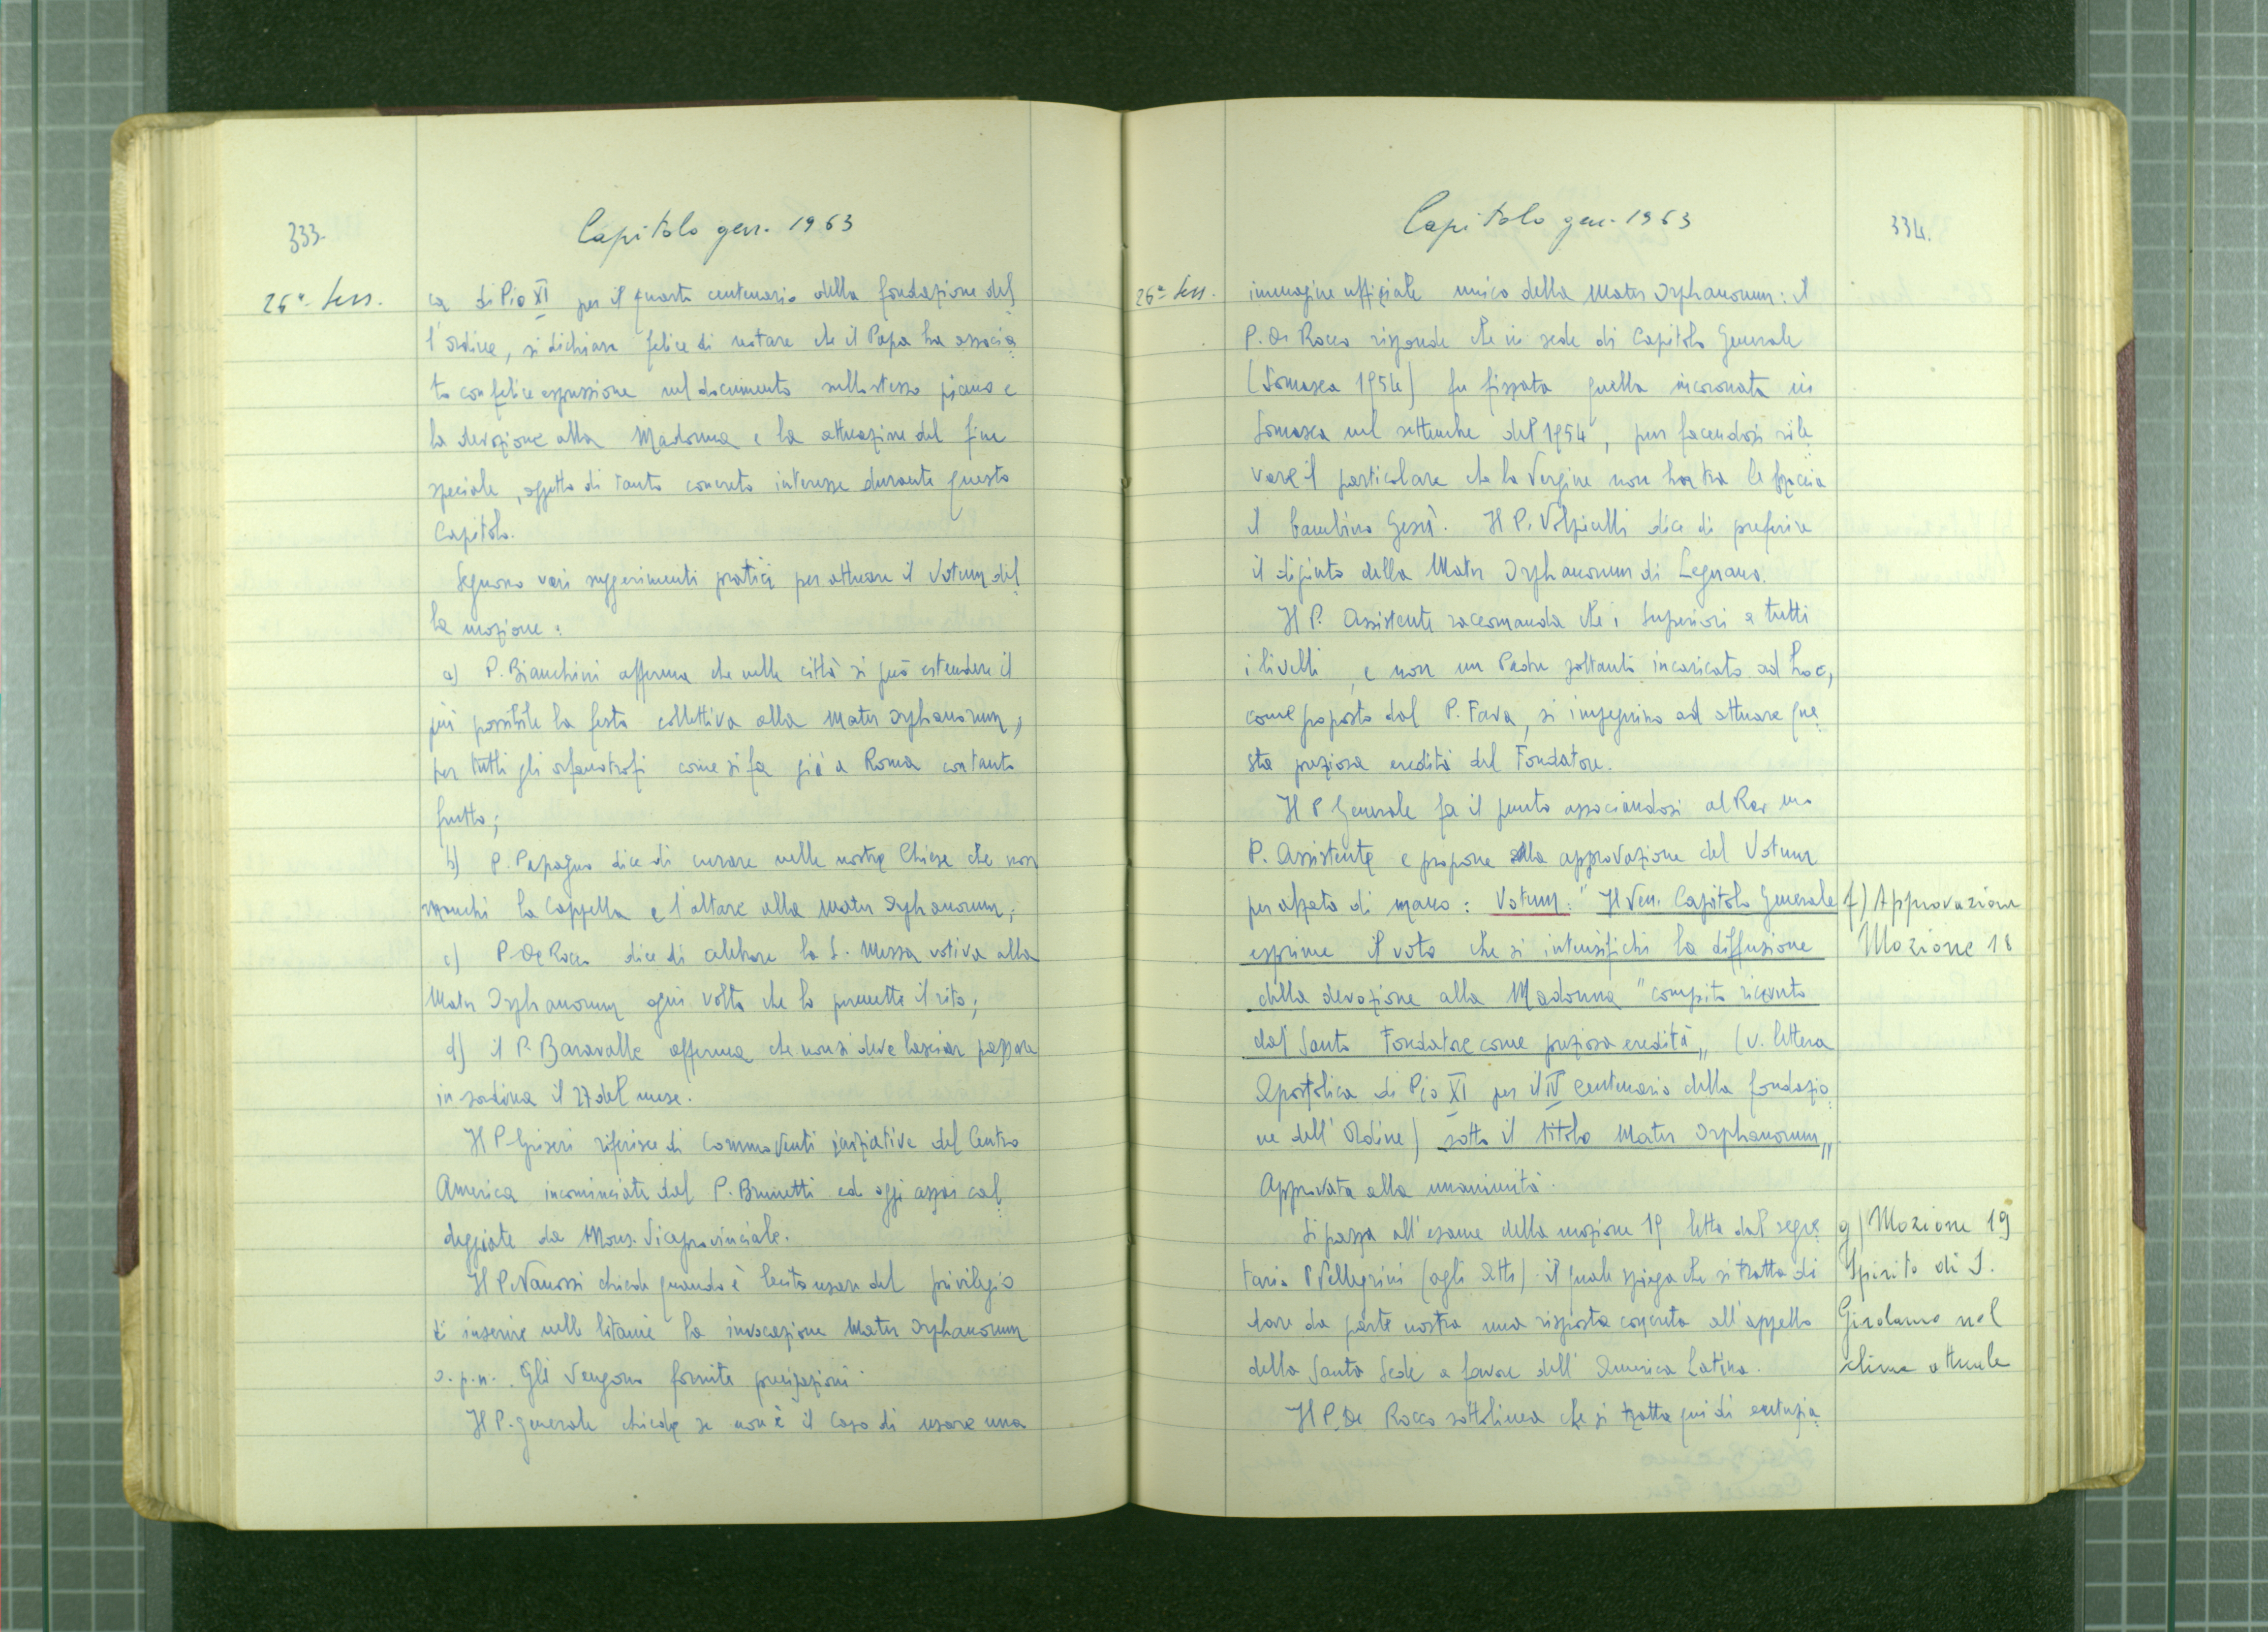 333.
Capitolo gen. 1963
26ª Sess.
ca di Pio XI per il quarto centenario della fondazione del
l'Ordine, si dichiara felice di notare che il Papa ha associa
to con felice espressione nel documento sullo stesso piano e
la devozione alla Madonna e la attuazione del fine
speciale, oggetto di tanto concreto interesse durante questo
Capitolo.
Seguono vari suggerimenti pratici per attuare il Votum del
la mozione:
a) P. Bianchini afferma che nelle città si può estendere il
più possibile la festa collettiva alla Mater Orphanorum,
per tutti gli orfanotrofi come si fa già a Roma con tanto
frutto;
b) P. Papagno dice di curare nelle nostre Chiese che non
manchi la Cappella e l'altare alla Mater Orphanorum;
c) P. De Rocco dice di celebrare la S. Messa votiva alla
Mater Orphanorum ogni volta che lo permette il rito;
d) il P. Baravalle afferma che non si deve lasciar passare
in sordina il 27 del mese.
Il P. Griseri riferisce di commoventi iniziative del Centro
America incominciate dal P. Brunetti ed oggi assai cal
deggiate da Mons. Viceprovinciale.
Il P. Vanossi chiede quando è lecito usare del privilegio
di inserire nelle litanie la invocazione Mater Orphanorum
o. p. n. . Gli vengono fornite precisazioni.
Il P. generale chiede se non è il caso di usare una
Capitolo gen. 1963
334.
26ª Sess.
immagine ufficiale unica della Mater Orphanorum: il
P. De Rocco risponde che in sede di Capitolo Generale
(Somasca 1954) fu fissata quella incoronata in
Somasca nel settembre del 1954, pur facendosi rile
vare il particolare che la Vergine non ha tra le braccia
il bambino Gesù. Il P. Volpicelli dice di preferire
il dipinto della Mater Orphanorum di Legnano.
Il P. Assistente raccomanda che i Superiori a tutti
i livelli, e non un Padre soltanto incaricato ad hoc,
come proposto dal P. Fava, si impegnino ad attuare que
sta preziosa eredità del Fondatore.
Il P. Generale fa il punto associandosi al Rev.mo
P. Assistente e propone alla approvazione del Votum
per alzata di mano: Votum: "Il Ven. Capitolo Generale
esprime il voto che si intensifichi la diffusione
della devozione alla Madonna "compito ricevuto
dal Santo Fondatore come preziosa eredità" (v. lettera
Apostolica di Pio XI per il IV centenario della fondazio
ne dell'Ordine) sotto il titolo Mater Orphanorum"
Approvata alla unanimità.
Si passa all'esame della mozione 19 letta dal segre
tario P. Pellegrini (agli Atti) il quale spiega che si tratta di
dare da parte nostra una risposta concreta all'appello
della Santa Sede a favore dell'America Latina.
Il P. De Rocco sottolinea che si tratta qui di entusia
f) Approvazione
Mozione 18
g) Mozione 19
Spirito di S.
Girolamo nel
clima attuale